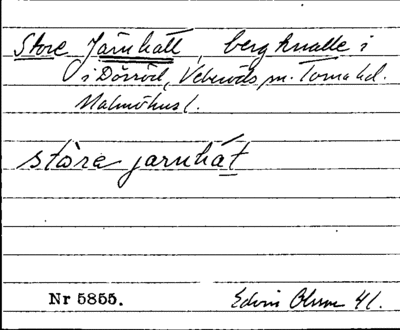 Store Järnhatt, bergknalle i
i Dörröd, Veberöds sn. Torna hd.
Malmöhus l.
stòra jarnhát
Nr 5855.
Edvin Ohlsson 41.